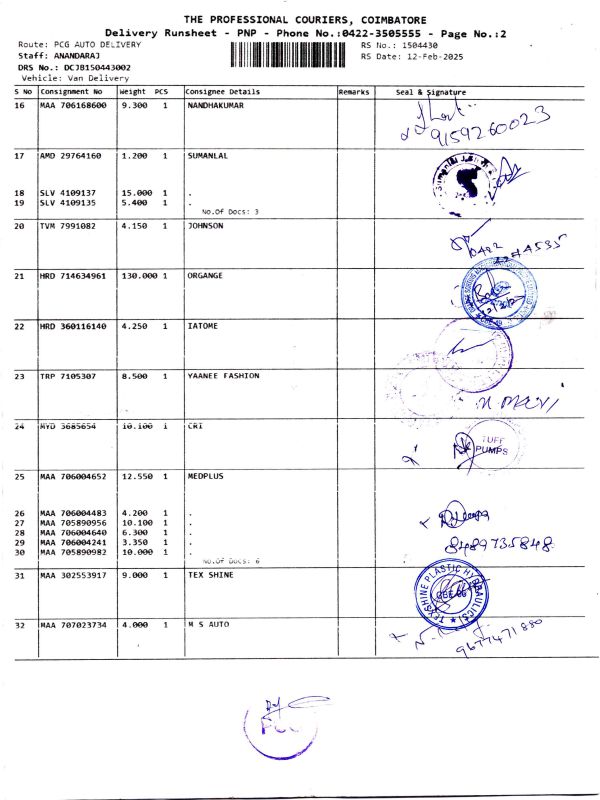 THE PROFESSIONAL COURIERS, COIMBATORE
Delivery Runsheet - PNP - Phone No.:0422-3505555 - Page No.:2
Route: PCG AUTO DELIVERY
RS No.: 1504430
Staff: ANANDARAJ
RS Date: 12-Feb-2025
DRS No.: DCJB150443002
Vehicle: Van Delivery
S No Consignment No Weight PCS Consignee Details Remarks Seal & Signature
16 MAA 706168600 9.300 1 NANDHAKUMAR
9159260023
17 AMD 29764160 1.200 1 SUMANLAL
18 SLV 4109137 15.000 1 .
19 SLV 4109135 5.400 1 .
No.Of Docs: 3
20 TVM 7991082 4.150 1 JOHNSON
21 HRD 714634961 130.000 1 ORGANGE
22 HRD 360116140 4.250 1 IATOME
23 TRP 7105307 8.500 1 YAANEE FASHION
24 MYD 3685654 10.100 1 CRI
TUFF
PUMPS
25 MAA 706004652 12.550 1 MEDPLUS
26 MAA 706004483 4.200 1 .
27 MAA 705890956 10.100 1 .
28 MAA 706004640 6.300 1 .
29 MAA 706004241 3.350 1 .
30 MAA 705890982 10.000 1 .
8489735848
No.Of Docs: 6
31 MAA 302553917 9.000 1 TEX SHINE
TEXSHINE PLASTIC HYDRAULICS
32 MAA 707023734 4.000 1 M S AUTO
9677471880